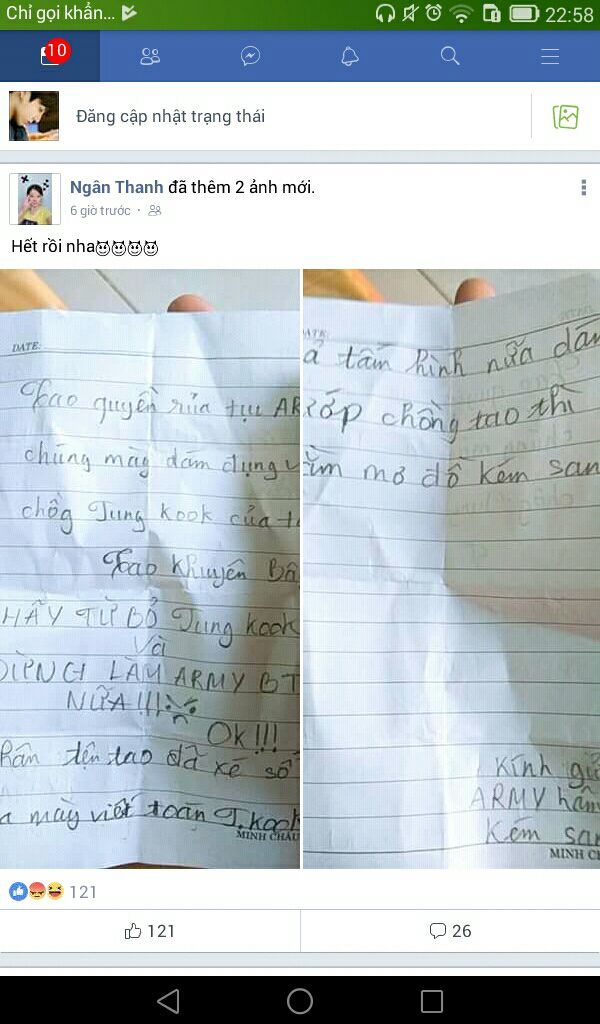 Chỉ gọi khẩn...
22:58
10
Đăng cập nhật trạng thái
Ngân Thanh đã thêm 2 ảnh mới.
6 giờ trước
Hết rồi nha😈😈😈😈
DATE:
Tao quyền rủa tụi AR
chúng mày dám dụng v
chồg Jung kook của t
Tao Khuyên Bâ
HÃY TỪ BỎ Jung kook
Và
DỪNG LÀM ARMY BT
NỮA!!!
Ok!!!
hân tện tao đã xé số
a mày viết toàn J.kook
MINH CHÂU
ATE:
ả tấm hình nữa dám
cướp chồng tao thì
ằm mơ đồ kém san
Kính gử
ARMY hâm
Kém san
MINH C
121
121
26